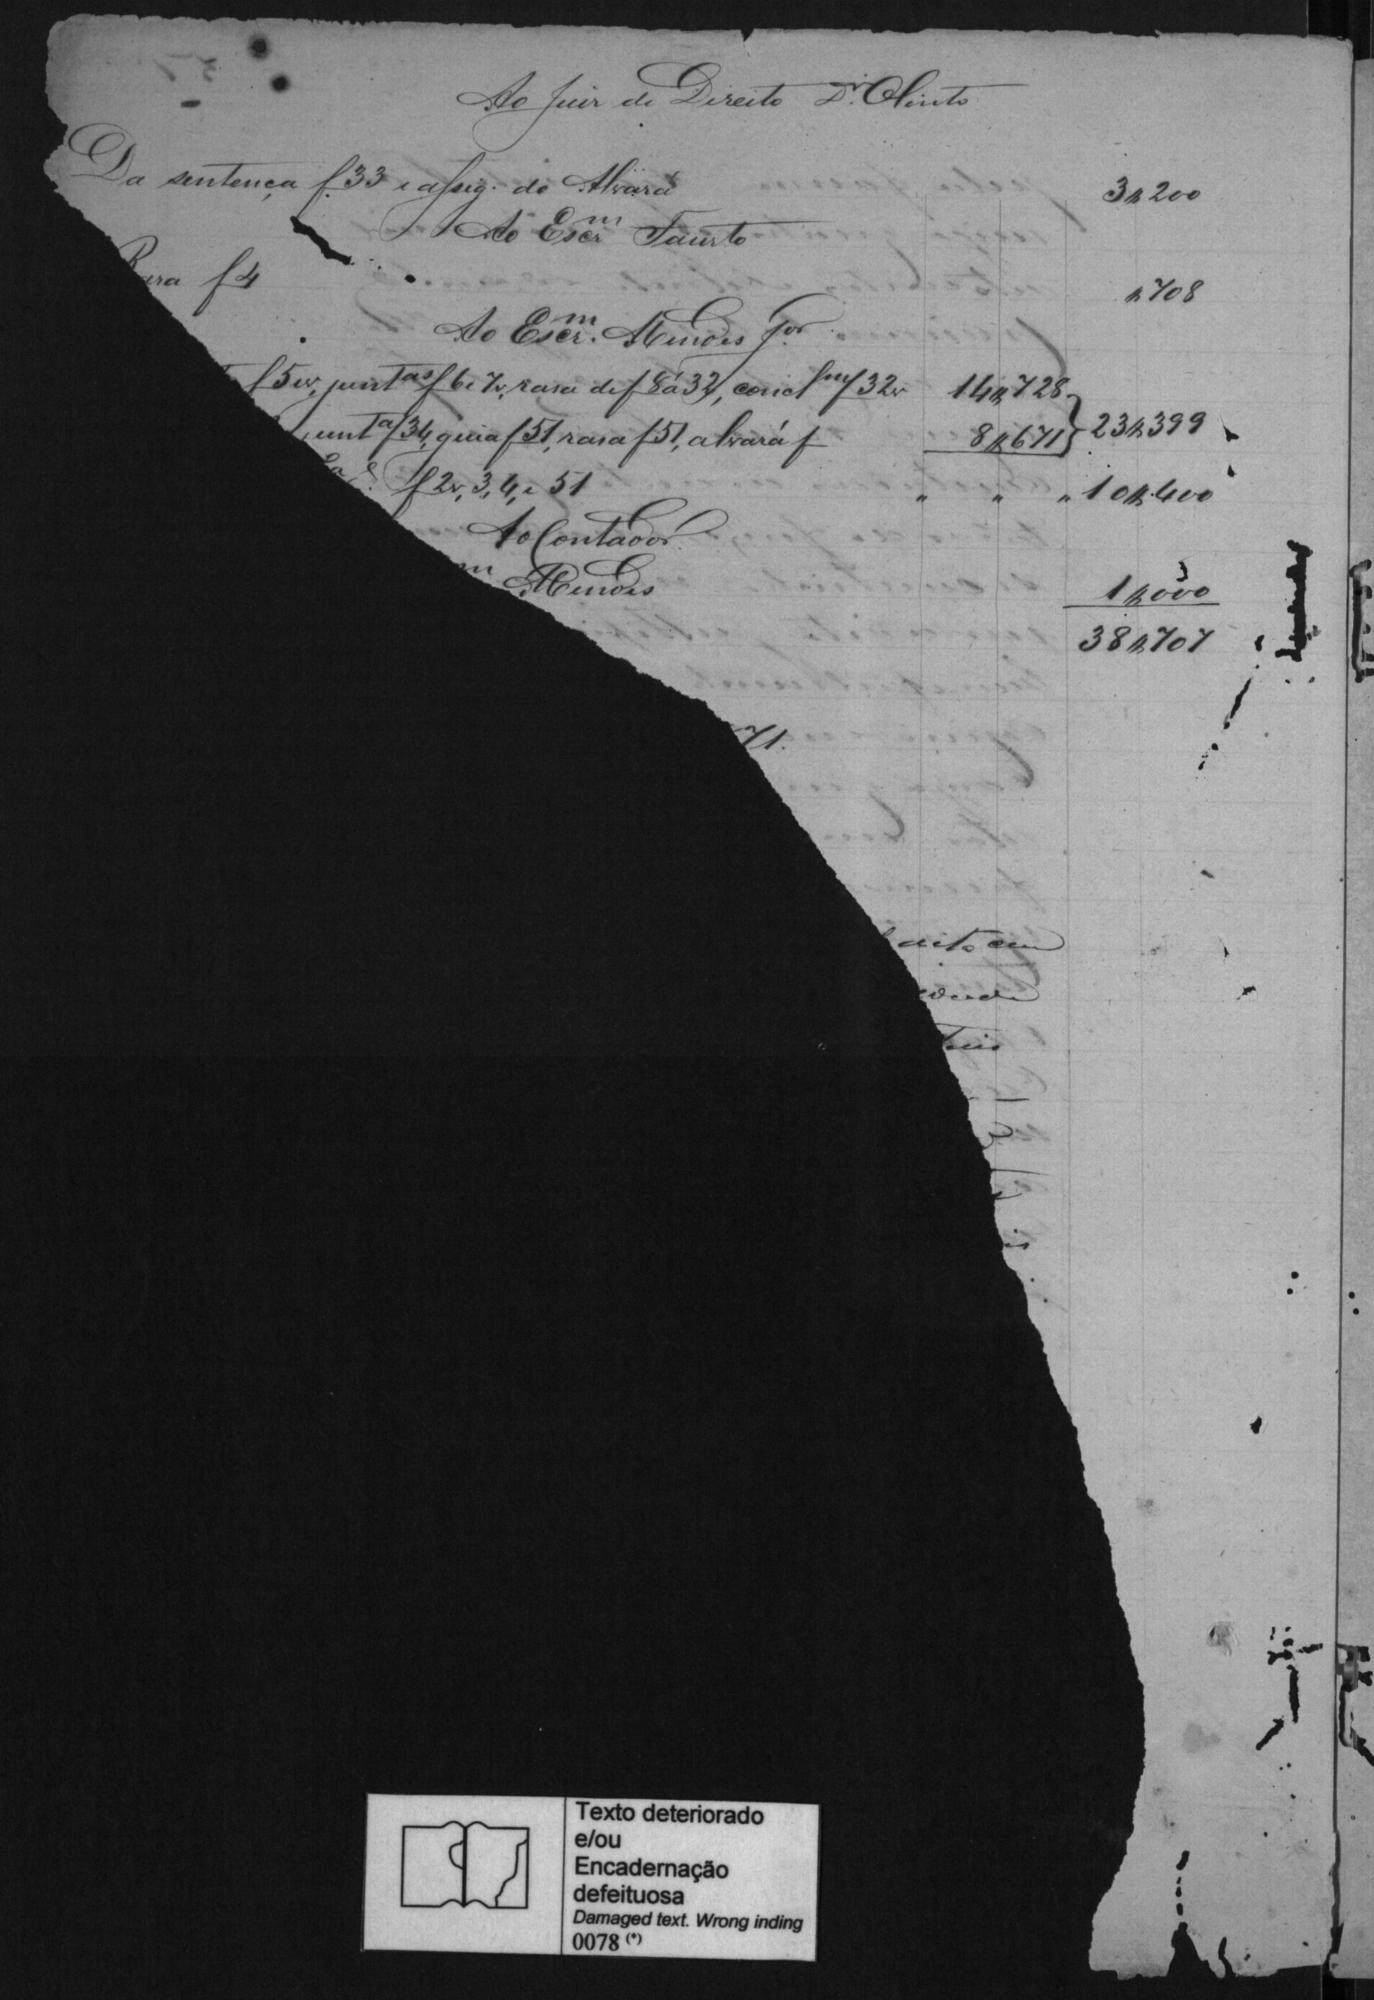 Ao Juiz de Direito Dr. Olinto
Da sentença f 33 e assig. do Alvará 3$200
Ao Escrm Fausto
Rasa f 4 $708
Ao Escrm. Mendes Jor.
f 5 e v, juntas f 6 e 7v, rasa de f 8 á 32, conclm f 32v 14$728
junta f 34, guia f 51, rasa f 51, alvará f 8$671 } 23$399
f 2v, 3, 4, e 51 " " " 10$400
Ao Contador
Mendes 1$000
38$707
71.
Texto deteriorado
e/ou
Encadernação
defeituosa
Damaged text. Wrong inding
0078 (*)